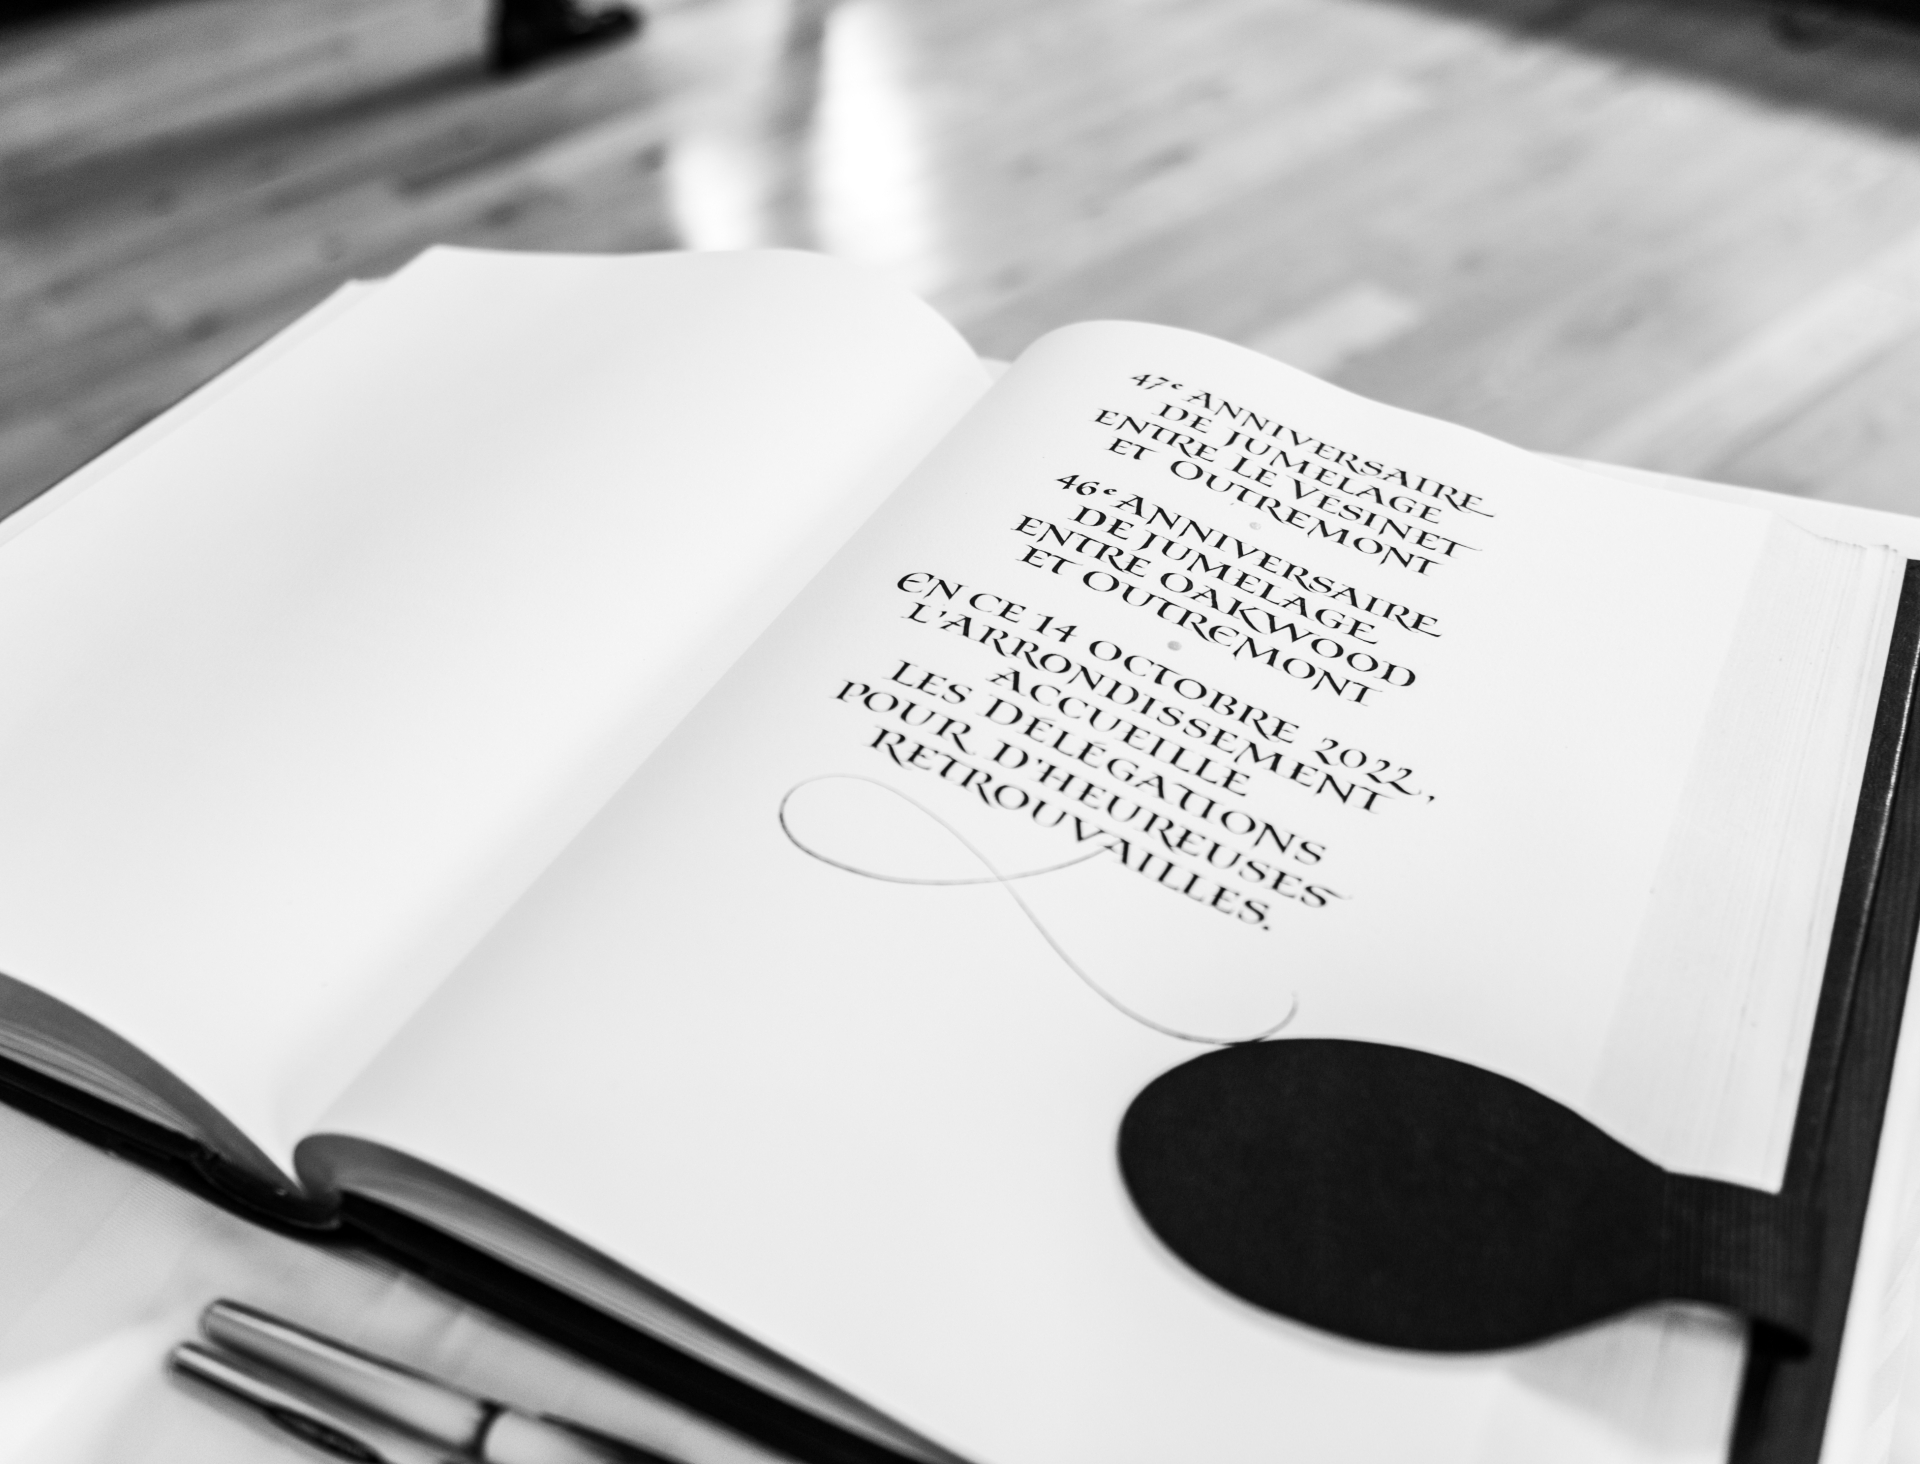 47e ANNIVERSAIRE
DE JUMELAGE
ENTRE LE VESINET
ET OUTREMONT
46e ANNIVERSAIRE
DE JUMELAGE
ENTRE OAKWOOD
ET OUTREMONT
EN CE 14 OCTOBRE 2022,
L'ARRONDISSEMENT
ACCUEILLE
LES DÉLÉGATIONS
POUR D'HEUREUSES
RETROUVAILLES.